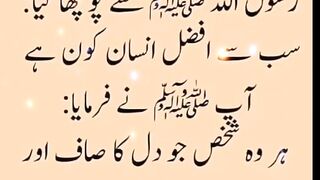 رسول اللہ ﷺ سے پوچھا گیا:
سب سے افضل انسان کون ہے
آپ ﷺ نے فرمایا:
ہر وہ شخص جو دل کا صاف اور